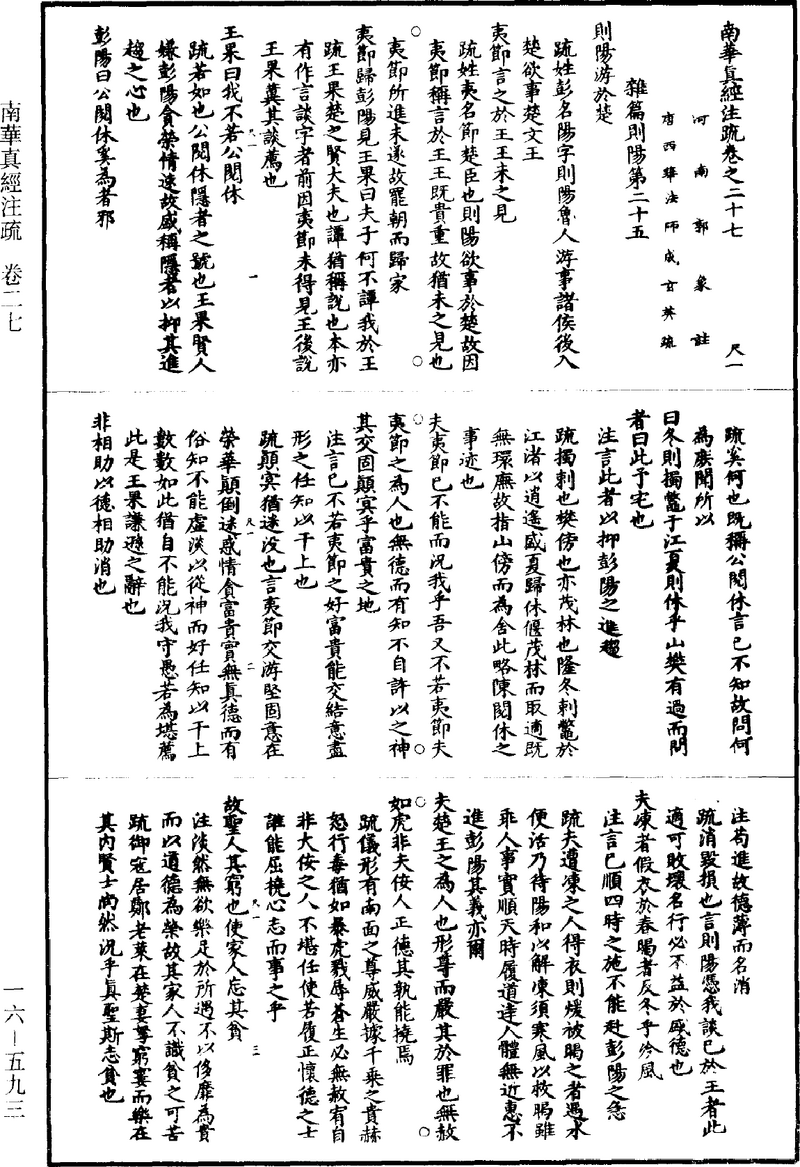 南華真經注疏卷之二十七 尺一
河南郭象註
唐西華法師成玄英疏
雜篇則陽第二十五
則陽游於楚
疏姓彭名陽字則陽魯人游事諸侯後入
楚欲事楚文王
夷節言之於王王未之見
疏姓夷名節楚臣也則陽欲事於楚故因
夷節稱言於王王既貴重故猶未之見也
夷節所進未遂故罷朝而歸家
夷節歸彭陽見王果曰夫子何不譚我於王
疏王果楚之賢大夫也譚猶稱說也本亦
有作言談字者前因夷節未得見王後說
王果冀其談薦也
王果曰我不若公閱休
疏若如也公閱休隱者之號也王果賢人
嫌彭陽貪榮情速故盛稱隱者以抑其進
趨之心也
彭陽曰公閱休奚為者邪
疏奚何也既稱公閱休言已不知故問何
為庶聞所以
曰冬則擉鼈于江夏則休乎山樊有過而問
者曰此予宅也
注言此者以抑彭陽之進趨
疏擉刺也樊傍也亦茂林也隆冬刺鼈於
江渚以逍遙盛夏歸休偃茂林而取適既
無環廡故指山傍而為舍此略陳閱休之
事迹也
夫夷節已不能而況我乎吾又不若夷節夫
夷節之為人也無德而有知不自許以之神
其交固顛冥乎富貴之地
注言已不若夷節之好富貴能交結意盡
形之任知以干上也
疏顛冥猶迷沒也言夷節交游堅固意在
榮華顛倒迷惑情貪富貴實無真德而有
俗知不能虛淡以從神而好任知以干上
數數如此猶自不能況我守愚若為堪薦
此是王果謙遜之辭也
非相助以德相助消也
注苟進故德薄而名消
疏消毀損也言則陽憑我談已於王者此
適可敗壞名行必不益於盛德也
夫凍者假衣於春暍者反冬乎冷風
注言已順四時之施不能赴彭陽之急
疏夫遭凍之人得衣則煖被暍之者遇水
便活乃待陽和以解凍須寒風以救暍雖
乖人事實順天時履道達人體無近惠不
進彭陽其義亦爾
夫楚王之為人也形尊而嚴其於罪也無赦
如虎非夫佞人正德其孰能撓焉
疏儀形有南面之尊威嚴據千乘之貴赫
怒行毒猶如暴虎戮辱蒼生必無赦宥自
非大佞之人不堪任使若履正懷德之士
誰能屈撓心志而事之乎
故聖人其窮也使家人忘其貧
注淡然無欲樂足於所遇不以侈靡為貴
而以道德為榮故其家人不識貧之可苦
疏御寇居鄭老萊在楚妻孥窮窶而樂在
其內賢士尚然況乎真聖斯忘貧也
尺一 一
尺一 二
尺一 三
南華真經注疏 卷二七
一六—五九三